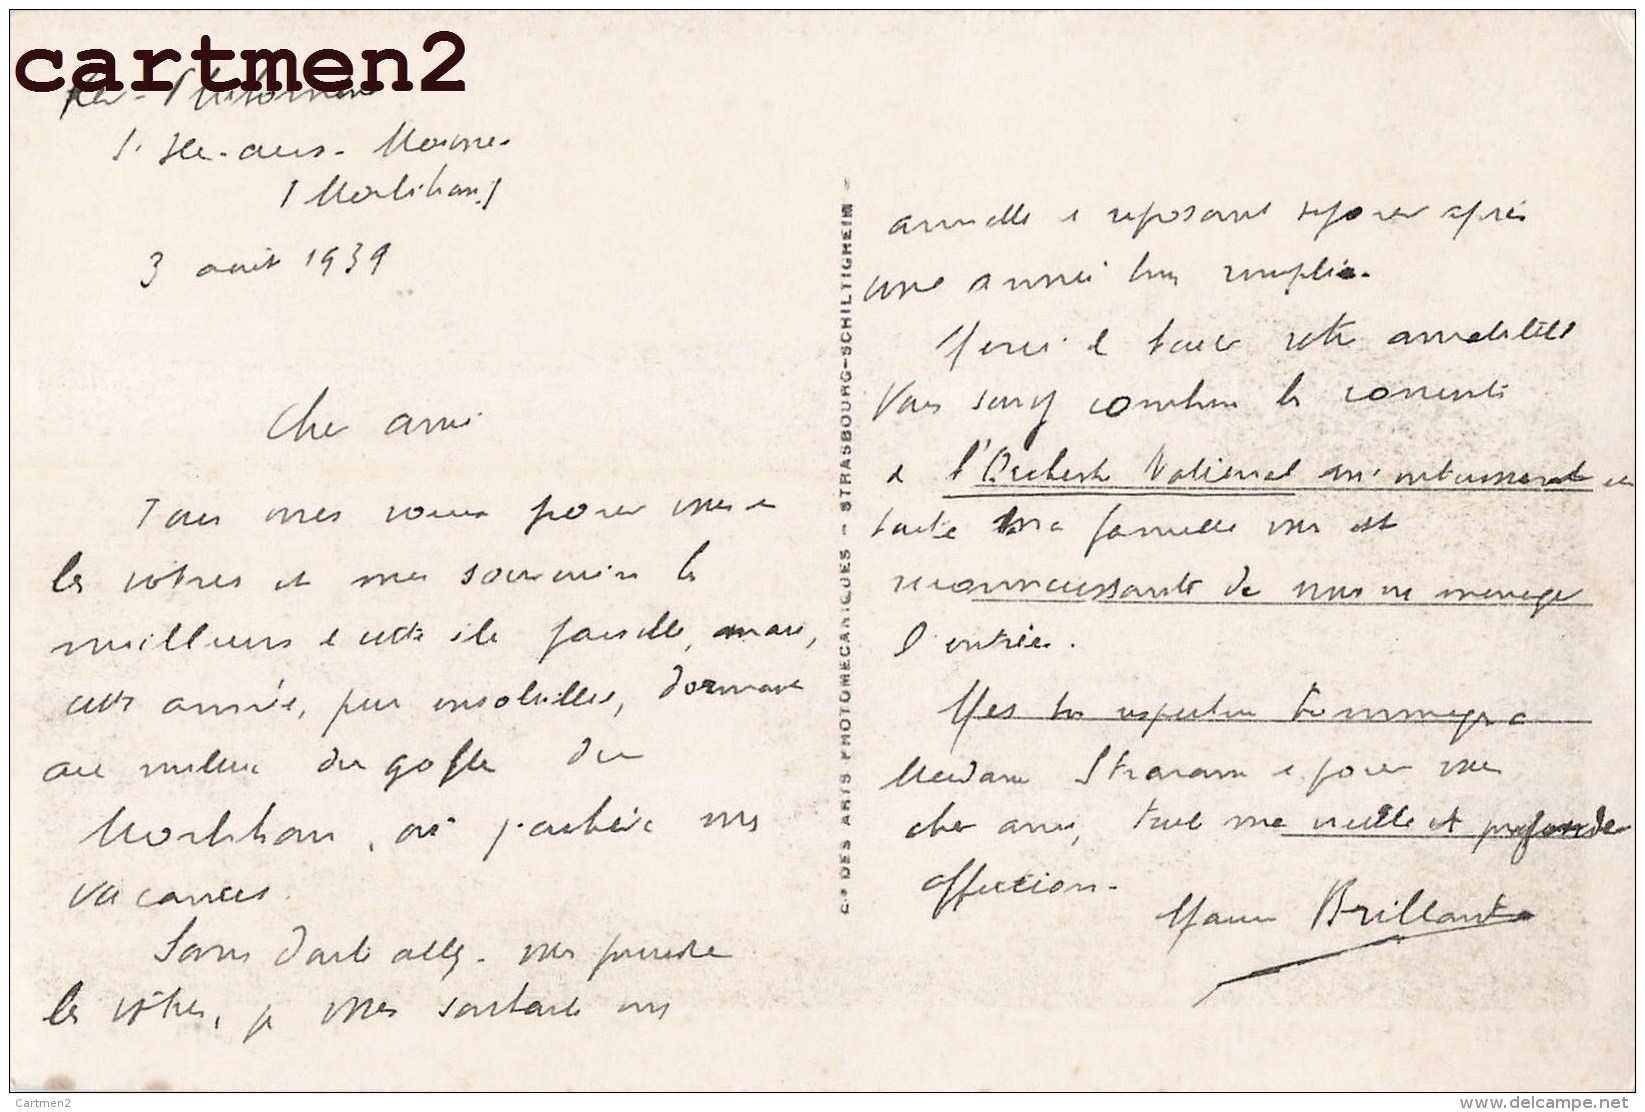 cartmen2
Ker-Philomène
l'Ile-aux-Moines
(Morbihan)
3 août 1939
Cher ami
Tous mes vœux pour vous et
les vôtres et mes souvenirs les
meilleurs de cette île paisible, mais,
cette année, peu ensoleillée, dormant
au milieu du golfe du
Morbihan, où j'achève mes
vacances.
Sans doute allez-vous prendre
les vôtres, je vous souhaite un
C.ie DES ARTS PHOTOMECANIQUES – STRASBOURG-SCHILTIGHEIM –
et reposant séjour après
une année bien remplie.
Merci de toute votre amabilité
Vous savez combien les concerts
de l'Orchestre National m'intéressent et
toute ma famille vous est
reconnaissante de nous en ménager
l'entrée.
Mes très respectueux hommages à
Madame Straram et pour vous
cher ami, toute ma vieille et profonde
affection.
Maurice Brillant
Cartmen2
delcampe.net